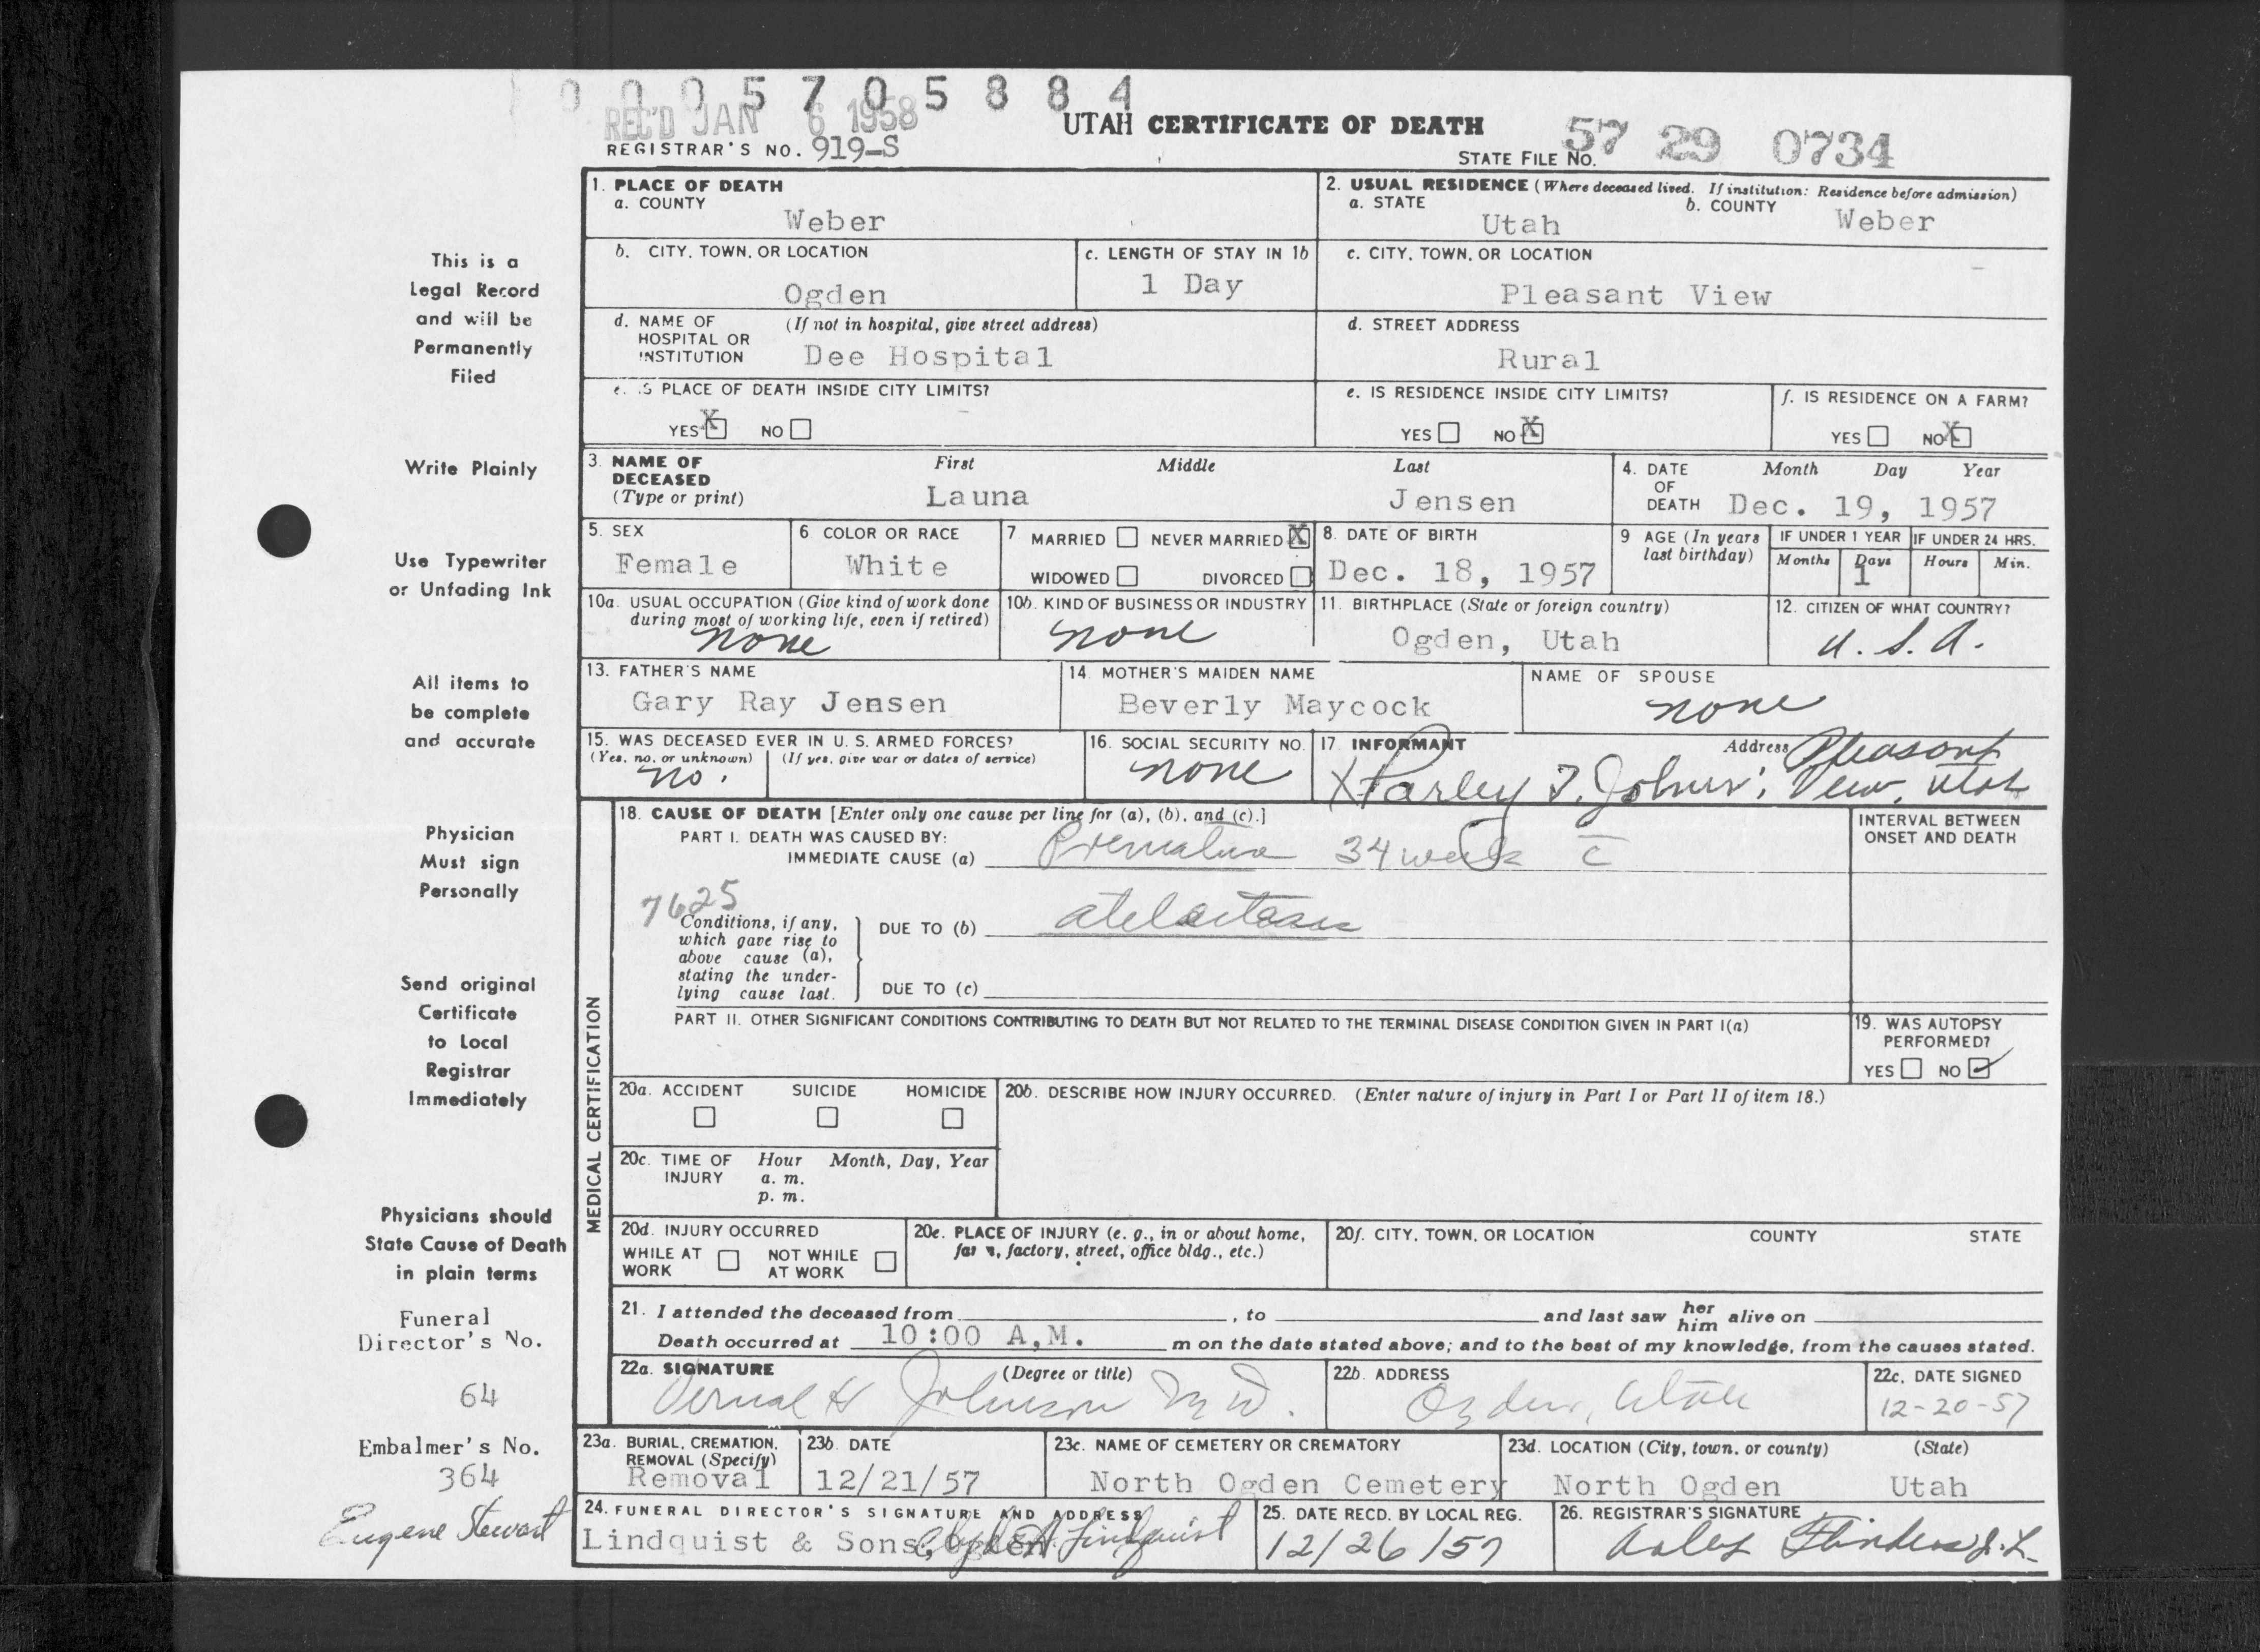 0 0 0 5 7 0 5 8 8 4
REC'D JAN 6 1958
UTAH CERTIFICATE OF DEATH
REGISTRAR'S NO. 919-S
STATE FILE NO. 57 29 0734
1. PLACE OF DEATH
a. COUNTY
Weber
2. USUAL RESIDENCE (Where deceased lived. If institution: Residence before admission)
a. STATE
Utah
b. COUNTY
Weber
b. CITY, TOWN, OR LOCATION
Ogden
c. LENGTH OF STAY IN 1b
1 Day
c. CITY, TOWN, OR LOCATION
Pleasant View
d. NAME OF HOSPITAL OR INSTITUTION
(If not in hospital, give street address)
Dee Hospital
d. STREET ADDRESS
Rural
e. IS PLACE OF DEATH INSIDE CITY LIMITS?
YES X NO
e. IS RESIDENCE INSIDE CITY LIMITS?
YES NO X
f. IS RESIDENCE ON A FARM?
YES NO X
3. NAME OF DECEASED
(Type or print)
First Middle Last
Launa Jensen
4. DATE OF DEATH
Month Day Year
Dec. 19, 1957
5. SEX
Female
6 COLOR OR RACE
White
7 MARRIED NEVER MARRIED X
WIDOWED DIVORCED
8. DATE OF BIRTH
Dec. 18, 1957
9 AGE (In years last birthday)
IF UNDER 1 YEAR
Months Days
1
IF UNDER 24 HRS.
Hours Min.
10a. USUAL OCCUPATION (Give kind of work done
during most of working life, even if retired)
none
10b. KIND OF BUSINESS OR INDUSTRY
none
11. BIRTHPLACE (State or foreign country)
Ogden, Utah
12. CITIZEN OF WHAT COUNTRY?
U. S. A.
13. FATHER'S NAME
Gary Ray Jensen
14. MOTHER'S MAIDEN NAME
Beverly Maycock
NAME OF SPOUSE
none
15. WAS DECEASED EVER IN U. S. ARMED FORCES?
(Yes, no, or unknown) (If yes, give war or dates of service)
no.
16. SOCIAL SECURITY NO.
none
17. INFORMANT Address
X Parley Pleasant View, Utah
MEDICAL CERTIFICATION
18. CAUSE OF DEATH [Enter only one cause per line for (a), (b), and (c).]
PART I. DEATH WAS CAUSED BY:
IMMEDIATE CAUSE (a) Premature 34 weeks c̄
INTERVAL BETWEEN
ONSET AND DEATH
7625
Conditions, if any,
which gave rise to
above cause (a),
stating the under-
lying cause last.
DUE TO (b) atelectasis
DUE TO (c)
PART II. OTHER SIGNIFICANT CONDITIONS CONTRIBUTING TO DEATH BUT NOT RELATED TO THE TERMINAL DISEASE CONDITION GIVEN IN PART I(a)
19. WAS AUTOPSY
PERFORMED?
YES NO ✓
20a. ACCIDENT SUICIDE HOMICIDE
20b. DESCRIBE HOW INJURY OCCURRED. (Enter nature of injury in Part I or Part II of item 18.)
20c. TIME OF INJURY
Hour Month, Day, Year
a. m.
p. m.
20d. INJURY OCCURRED
WHILE AT WORK NOT WHILE AT WORK
20e. PLACE OF INJURY (e. g., in or about home,
farm, factory, street, office bldg., etc.)
20f. CITY, TOWN, OR LOCATION COUNTY STATE
21. I attended the deceased from , to and last saw her him alive on
Death occurred at 10:00 A.M. m on the date stated above; and to the best of my knowledge, from the causes stated.
22a. SIGNATURE (Degree or title)
Vernal H Johnson M.D.
22b. ADDRESS
Ogden, Utah
22c. DATE SIGNED
12-20-57
23a. BURIAL, CREMATION,
REMOVAL (Specify)
Removal
23b. DATE
12/21/57
23c. NAME OF CEMETERY OR CREMATORY
North Ogden Cemetery
23d. LOCATION (City, town, or county) (State)
North Ogden Utah
24. FUNERAL DIRECTOR'S SIGNATURE AND ADDRESS
Lindquist & Sons, Ogden Lindquist
25. DATE RECD. BY LOCAL REG.
12/26/57
26. REGISTRAR'S SIGNATURE
This is a
Legal Record
and will be
Permanently
Filed
Write Plainly
Use Typewriter
or Unfading Ink
All items to
be complete
and accurate
Physician
Must sign
Personally
Send original
Certificate
to Local
Registrar
Immediately
Physicians should
State Cause of Death
in plain terms
Funeral
Director's No.
64
Embalmer's No.
364
Eugene Stewart